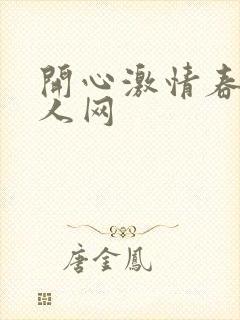 開心激情春
人网
唐金鳳